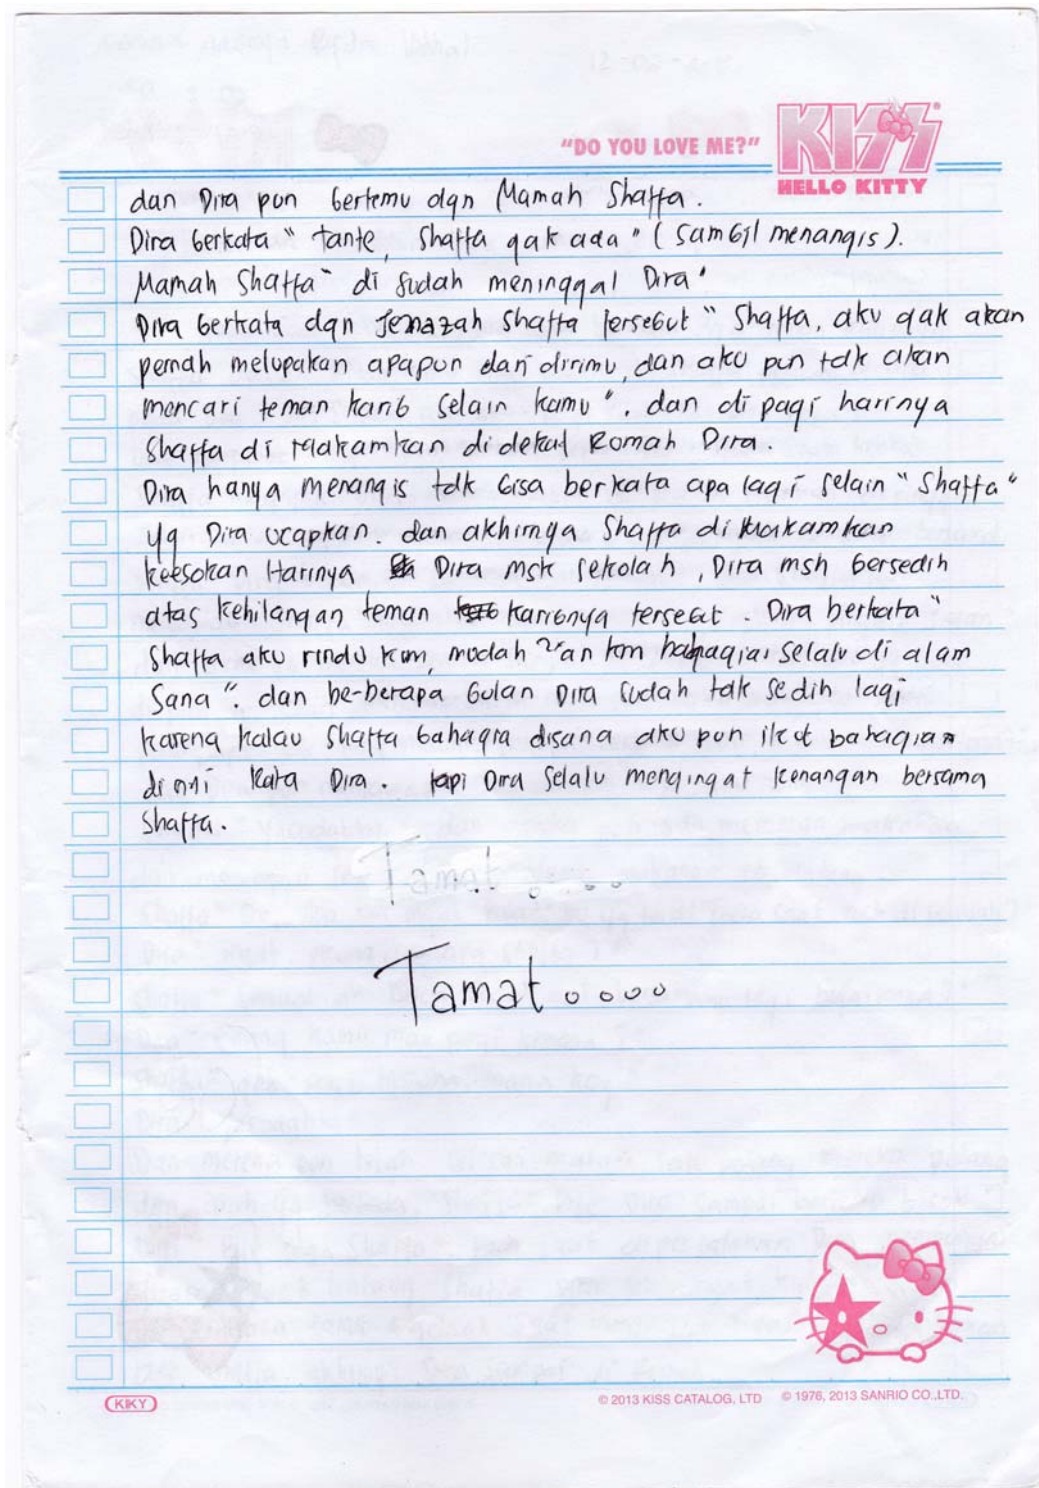 "DO YOU LOVE ME?"
KISS
HELLO KITTY
dan Dira pun bertemu dgn Mamah Shaffa.
Dira berkata " tante, Shaffa gak ada " ( Sambil menangis ).
Mamah Shaffa " di sudah meninggal Dira "
Dira berkata dgn Jenazah Shaffa tersebut " Shaffa, aku gak akan
pernah melupakan apapun dari dirimu, dan aku pun tdk akan
mencari teman karib selain kamu ". dan di pagi harinya
Shaffa di makamkan didekat Romah Dira.
Dira hanya menangis tdk bisa berkata apa lagi selain " Shaffa "
yg Dira ucapkan. dan akhirnya Shaffa di makamkan
keesokan Harinya Dira msk sekolah, Dira msh bersedih
atas kehilangan teman karibnya tersebut. Dira berkata "
Shaffa aku rindu kmu, mudah "an km bahagia selalu di alam
Sana ". dan be-berapa bulan Dira sudah tdk sedih lagi
karena kalau Shaffa bahagia disana aku pun ikut bahagia
disini kata Dira. tapi Dira selalu mengingat kenangan bersama
Shaffa.
Tamat....
Tamat....
KIKY
© 2013 KISS CATALOG, LTD © 1976, 2013 SANRIO CO.,LTD.